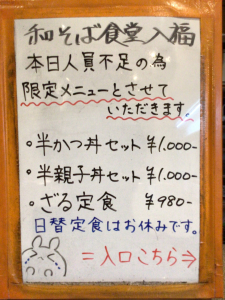 和そば食堂入福
本日人員不足の為
限定メニューとさせて
いただきます。
・半かつ丼セット ¥1.000-
・半親子丼セット ¥1.000-
・ざる定食 ¥980-
日替定食はお休みです。
=入口こちら⇒